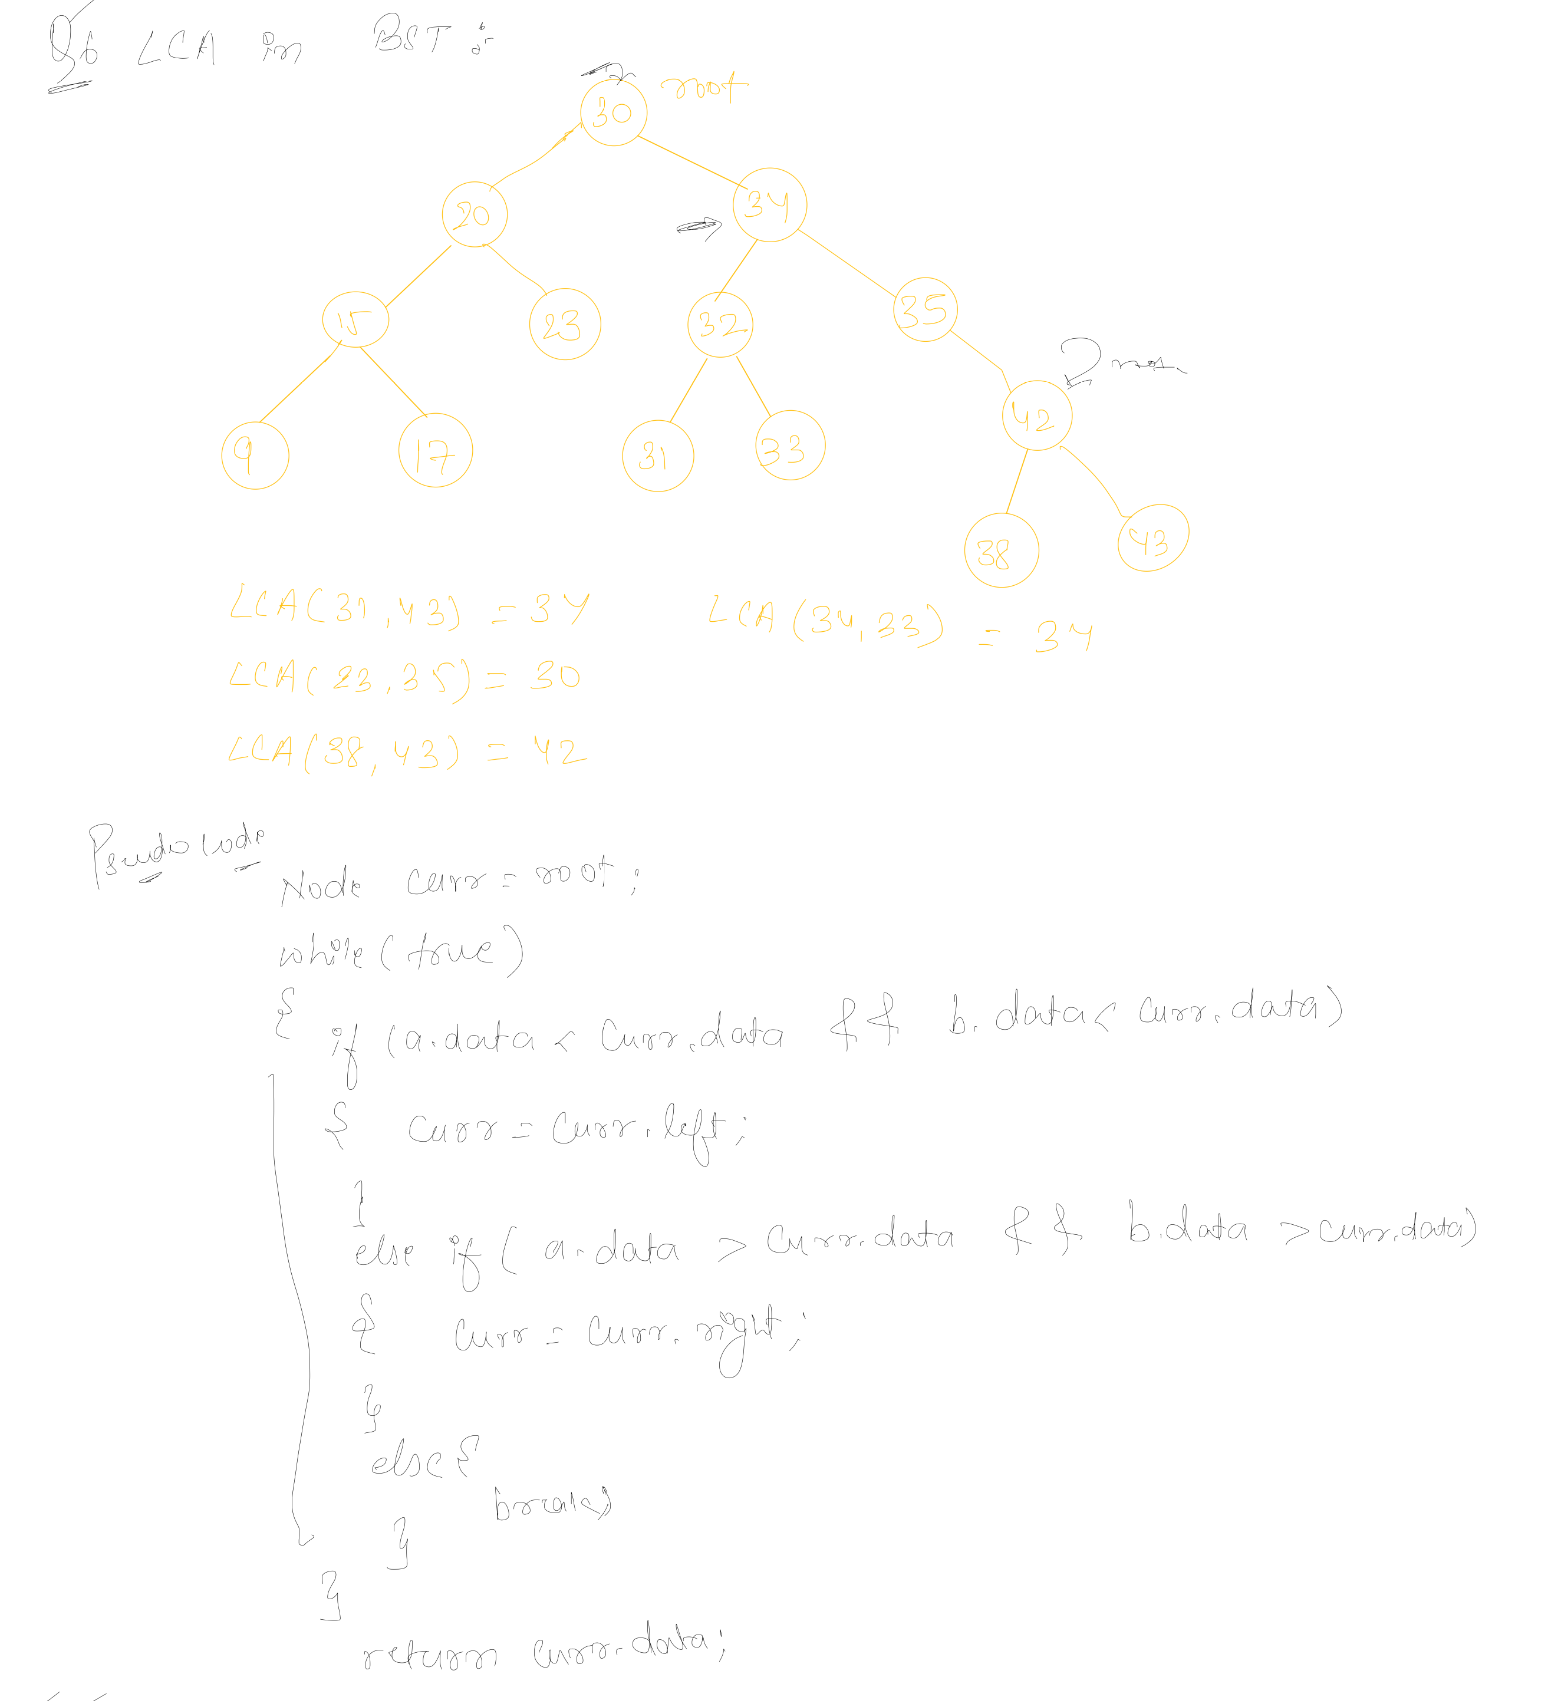 Q6 LCA in BST :-
root
30
34
20
15
23
32
35
root.
42
9
17
31
33
38
43
LCA(31,43) = 34
LCA(34,33) = 34
LCA(23,35) = 30
LCA(38,43) = 42
Pseudo code
Node curr = root;
while(true)
{
if (a.data < Curr.data && b.data < curr.data)
{ curr = curr.left;
}
else if ( a.data > Curr.data && b.data > curr.data)
{ curr = curr.right;
}
else {
break;
}
}
return curr.data;